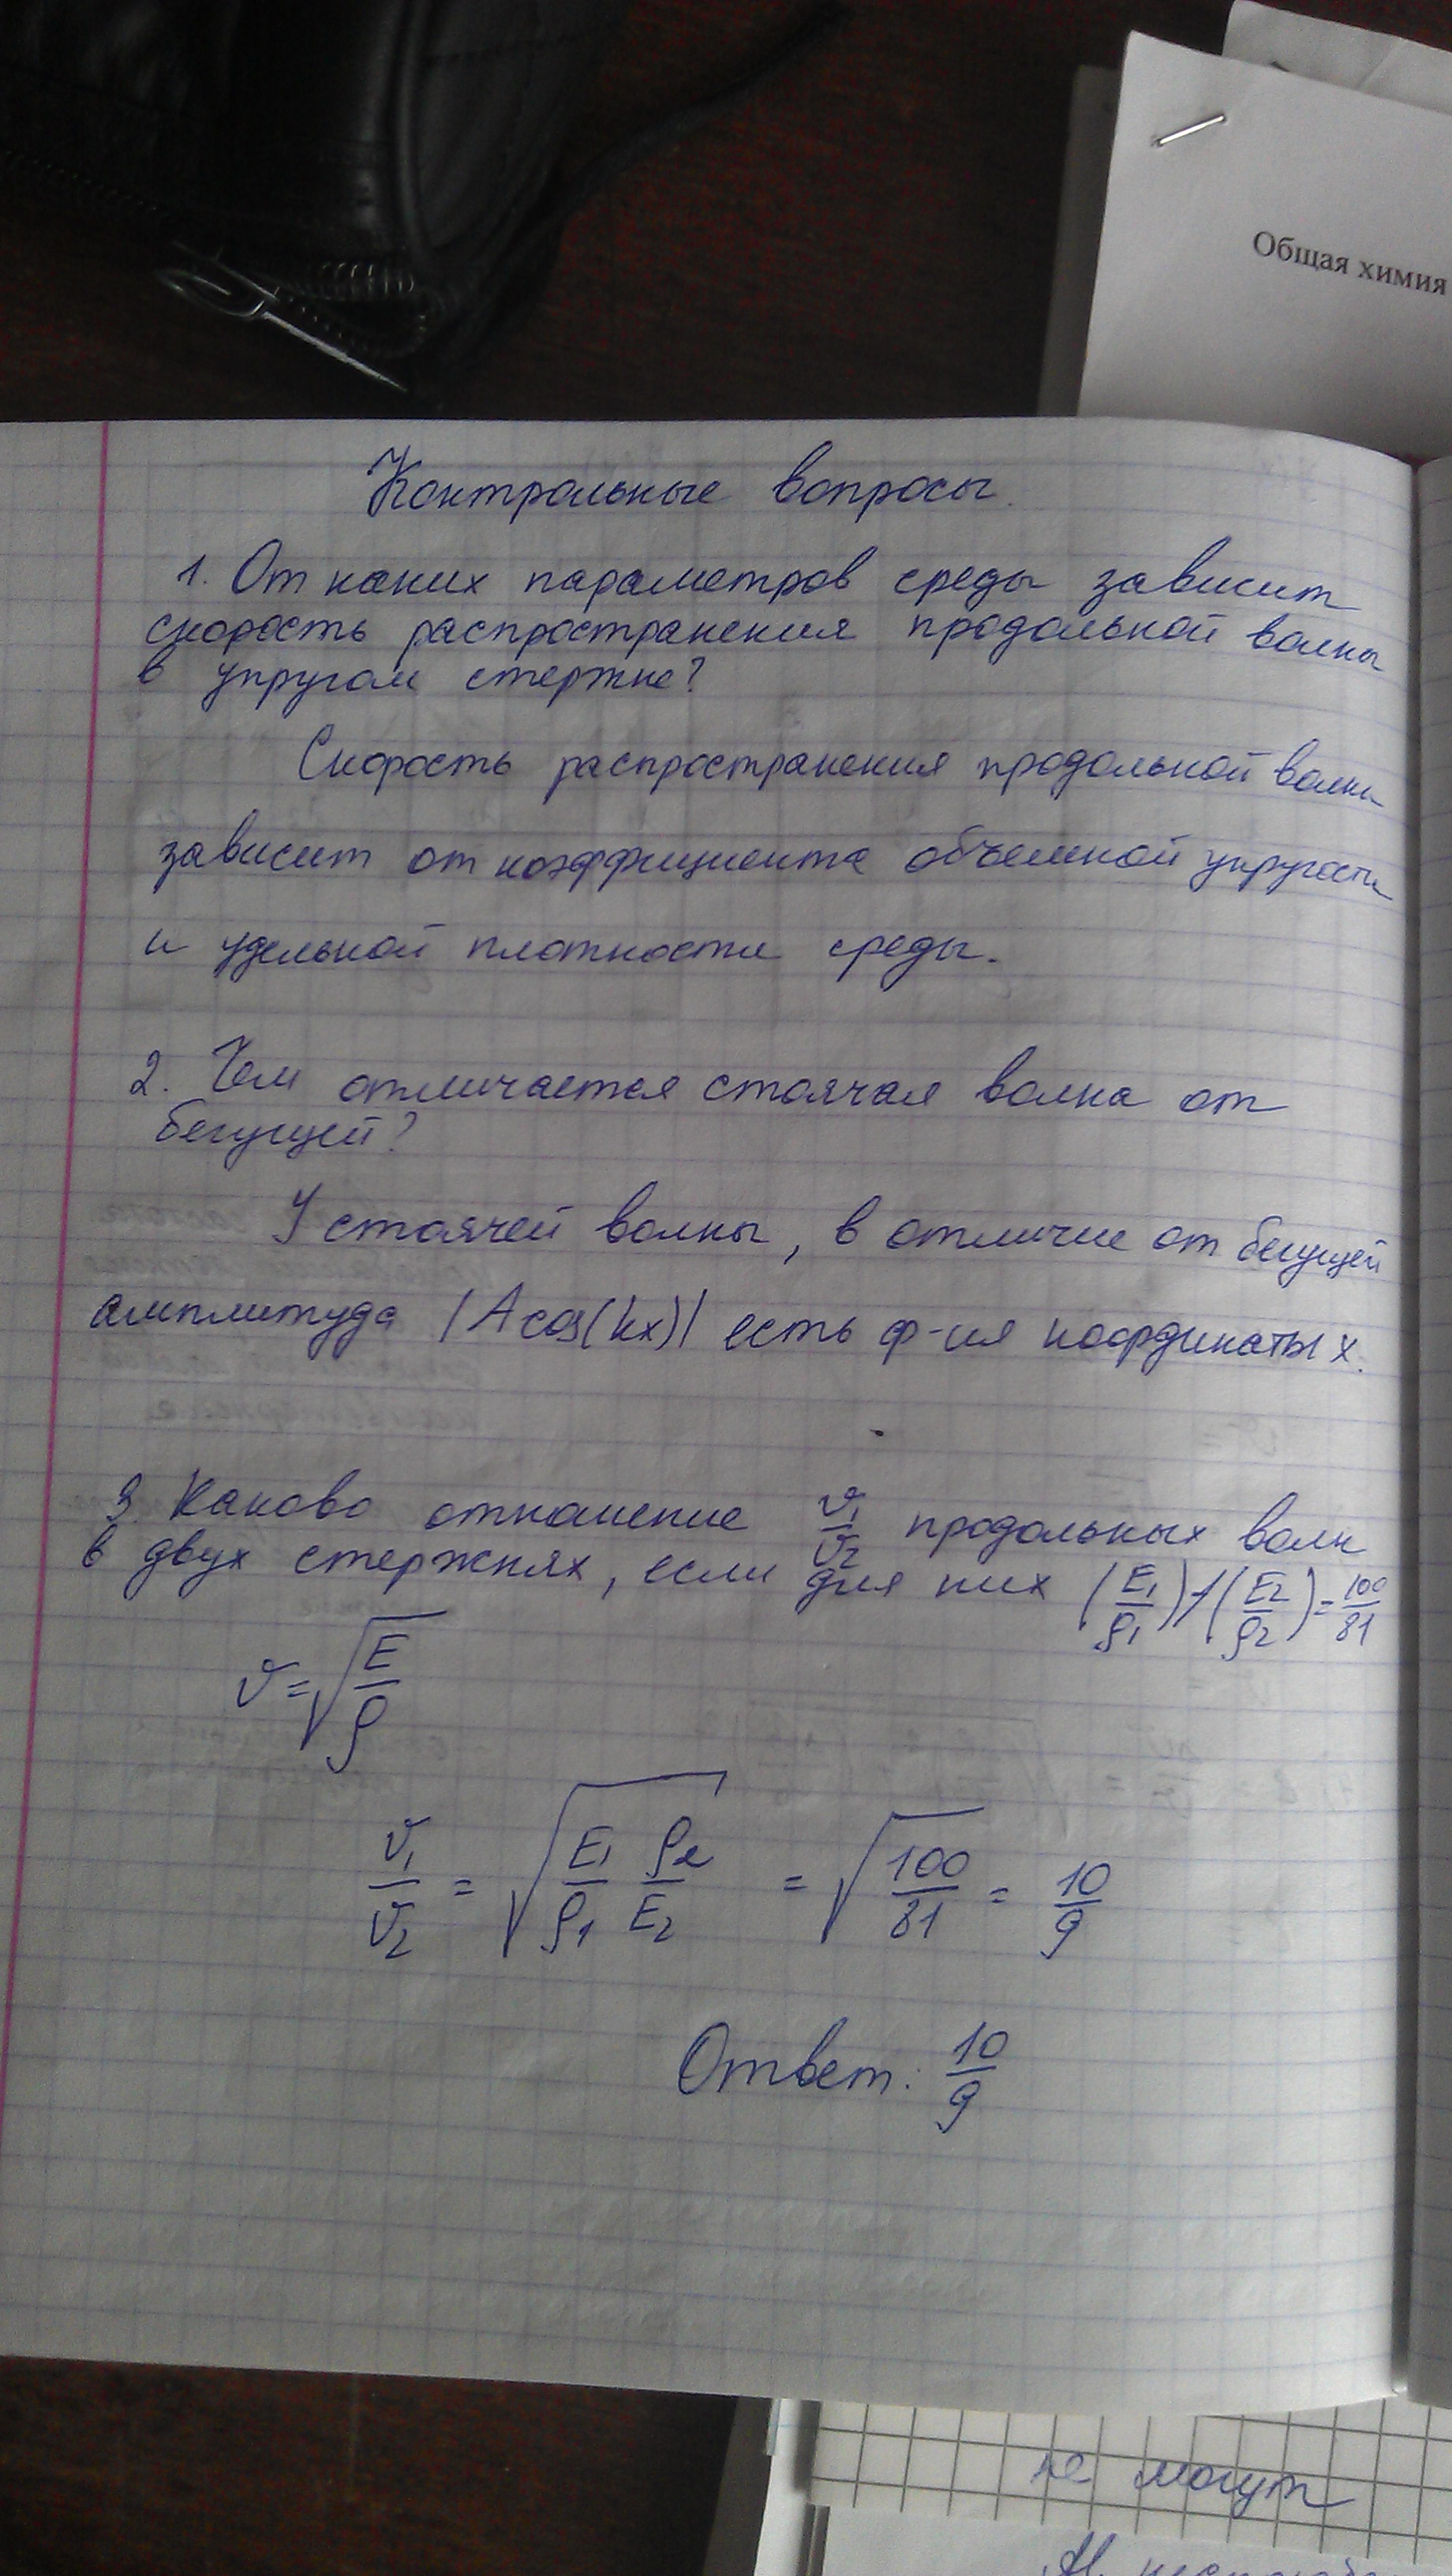 Общая химия
Контрольные вопросы.
1. От каких параметров среды зависит
скорость распространения продольной волны
в упругом стержне?
Скорость распространения продольной волны
зависит от коэффициента объемной упругости
и удельной плотности среды.
2. Чем отличается стоячая волна от
бегущей?
У стоячей волны, в отличие от бегущей
амплитуда |A cos(kx)| есть ф-ия координаты x.
3. Каково отношение v₁/v₂ продольных волн
в двух стержнях, если для них (E₁/ρ₁)/(E₂/ρ₂)=100/81
v=√(E/ρ)
v₁/v₂ = √(E₁/ρ₁ ρ₂/E₂) = √(100/81) = 10/9
Ответ: 10/9
не могут